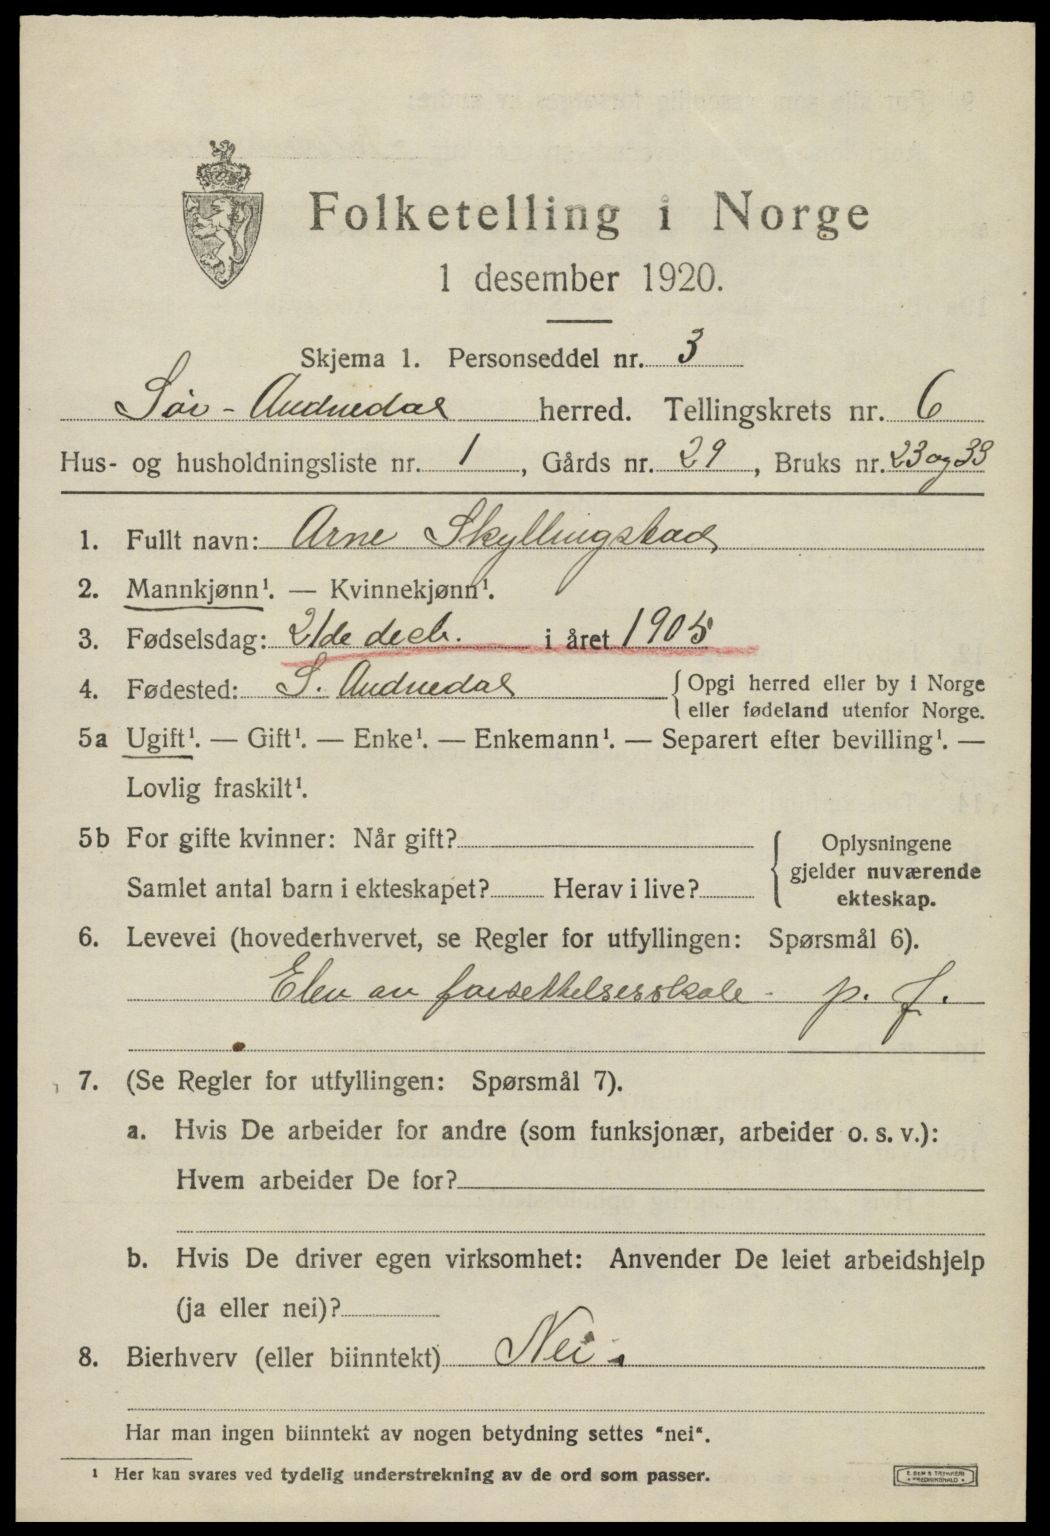 Folketelling i Norge
1 desember 1920.
Skjema 1. Personseddel nr. 3
Sør-Audnedal herred. Tellingskrets nr. 6
Hus- og husholdningsliste nr. 1, Gårds nr. 29, Bruks nr. 23 og 33
1. Fullt navn: Arne Skyllingstad
2. Mannkjønn¹. — Kvinnekjønn¹.
3. Fødselsdag: 21de decb. i året 1905
4. Fødested: S. Audnedal { Opgi herred eller by i Norge
eller fødeland utenfor Norge.
5a Ugift¹. — Gift¹. — Enke¹. — Enkemann¹. — Separert efter bevilling¹. —
Lovlig fraskilt¹.
5b For gifte kvinner: Når gift?
Samlet antal barn i ekteskapet? Herav i live?
{ Oplysningene
gjelder nuværende
ekteskap.
6. Levevei (hovederhvervet, se Regler for utfyllingen: Spørsmål 6).
Elev av forsettelsesskole - p. f.
7. (Se Regler for utfyllingen: Spørsmål 7).
a. Hvis De arbeider for andre (som funksjonær, arbeider o. s. v.):
Hvem arbeider De for?
b. Hvis De driver egen virksomhet: Anvender De leiet arbeidshjelp
(ja eller nei)?
8. Bierhverv (eller biinntekt) Nei.
Har man ingen biinntekt av nogen betydning settes "nei".
¹ Her kan svares ved tydelig understrekning av de ord som passer.
E. SEM'S TRYKKERI
FREDRIKSHALD